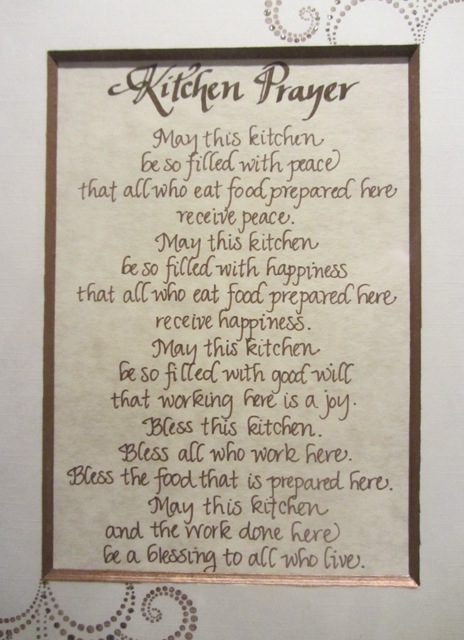 Kitchen Prayer
May this kitchen
be so filled with peace
that all who eat food prepared here
receive peace.
May this kitchen
be so filled with happiness
that all who eat food prepared here
receive happiness.
May this kitchen
be so filled with good will
that working here is a joy.
Bless this kitchen.
Bless all who work here.
Bless the food that is prepared here.
May this kitchen
and the work done here
be a blessing to all who live.